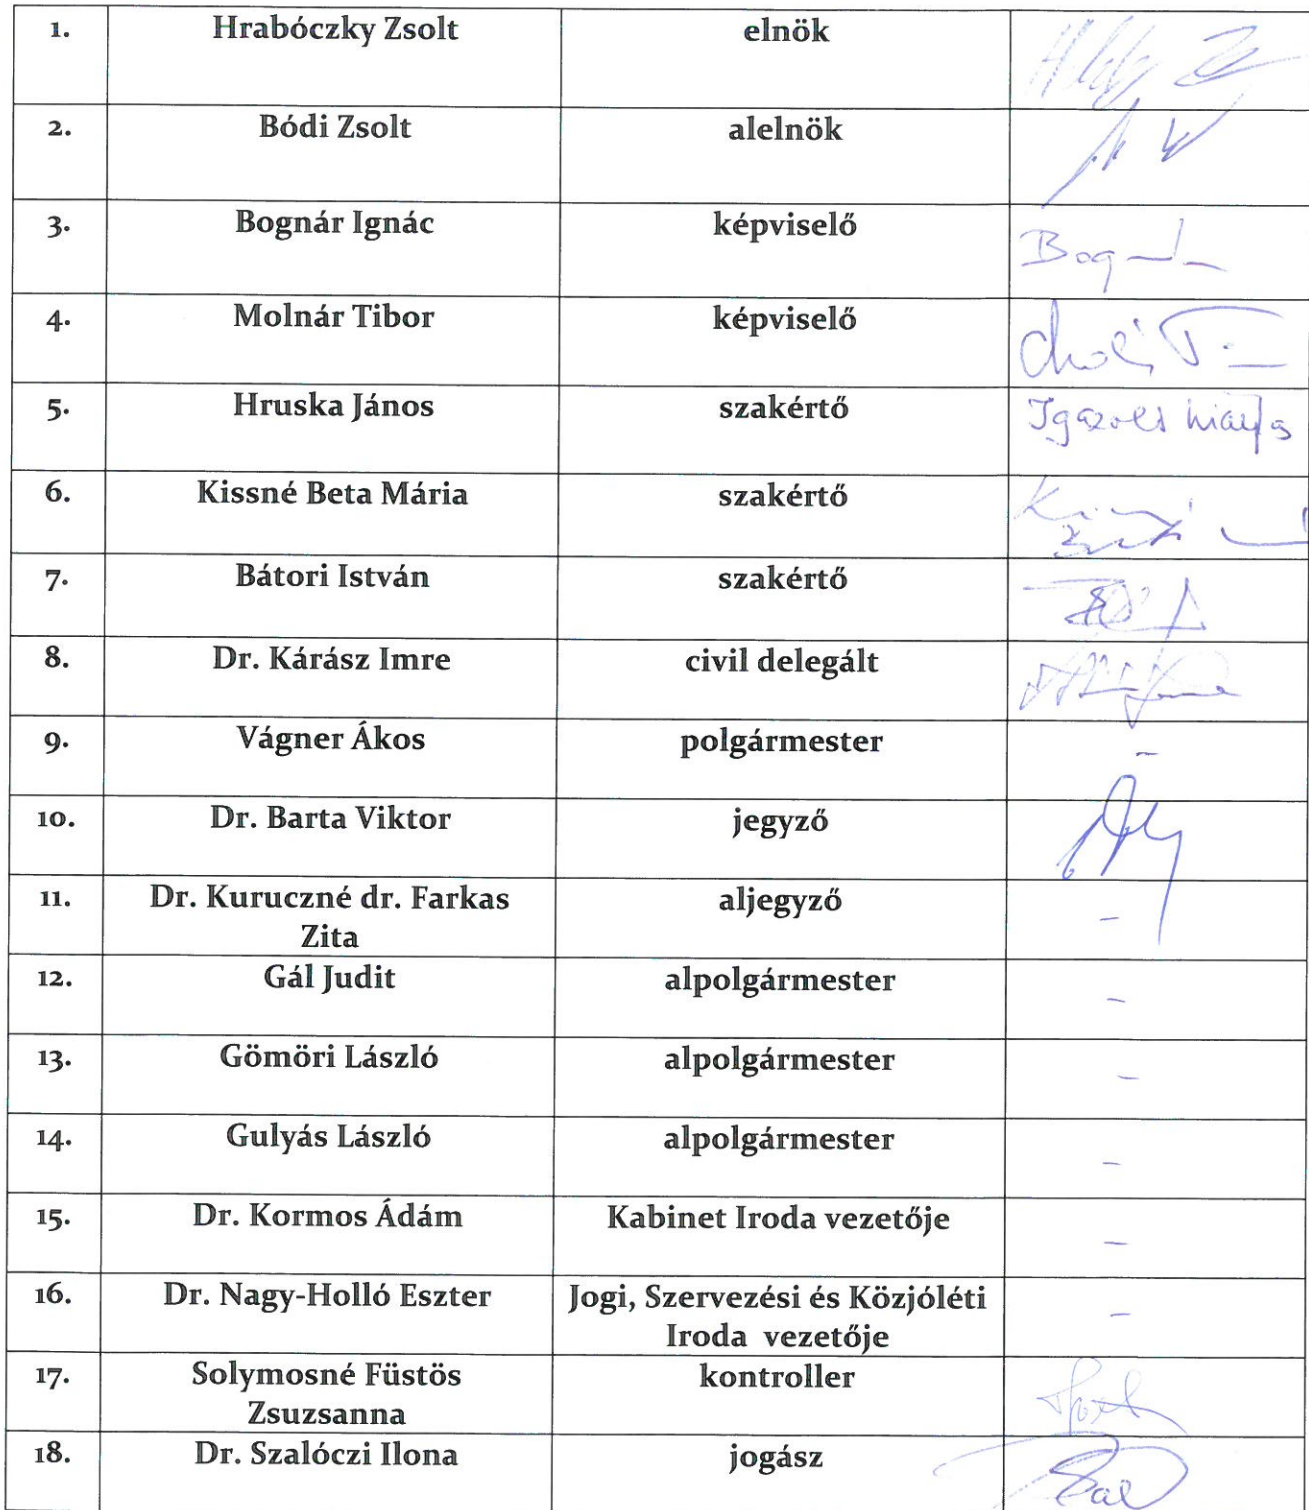 1. Hrabóczky Zsolt elnök
2. Bódi Zsolt alelnök
3. Bognár Ignác képviselő
4. Molnár Tibor képviselő
5. Hruska János szakértő Igazolt hiányzó
6. Kissné Beta Mária szakértő
7. Bátori István szakértő
8. Dr. Kárász Imre civil delegált
9. Vágner Ákos polgármester -
10. Dr. Barta Viktor jegyző
11. Dr. Kuruczné dr. Farkas aljegyző -
Zita
12. Gál Judit alpolgármester -
13. Gömöri László alpolgármester -
14. Gulyás László alpolgármester -
15. Dr. Kormos Ádám Kabinet Iroda vezetője -
16. Dr. Nagy-Holló Eszter Jogi, Szervezési és Közjóléti -
Iroda vezetője
17. Solymosné Füstös kontroller
Zsuzsanna
18. Dr. Szalóczi Ilona jogász